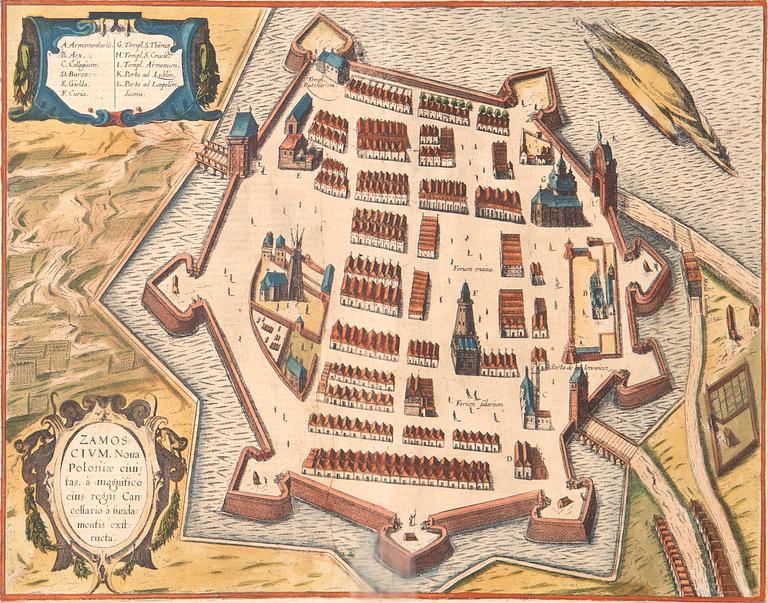 A. Armamentariu.
B. Arx.
C. Collegium.
D. Bursa.
E. Guilda.
F. Curia.
G. Templ. S. Thomæ
H. Templ. S. Crucis.
I. Templ. Armenum.
K. Porta ad Lublin.
L. Porta ad Leopolim
Templ.
Rutenorum.
Forum maius.
Porta de
Forum salarium
A
B
C
D
E
F
G
K
L
ZAMOS-
CIVM, Noua
Poloniæ ciui-
tas, à magnifico
eius regni Can-
cellario à funda-
mentis exst-
ructa.